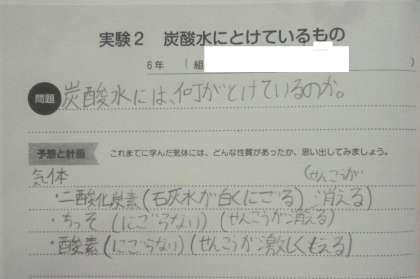 実験2 炭酸水にとけているもの
6年 ( 組 )
問題 炭酸水には、何がとけているのか。
予想と計画 これまでに学んだ気体には、どんな性質があったか、思い出してみましょう。
気体
(せんこうが
・二酸化炭素(石灰水が白くにごる) 消える)
・ちっそ (にごらない) (せんこうが消える)
・酸素(にごらない) (せんこうが激しくもえる)